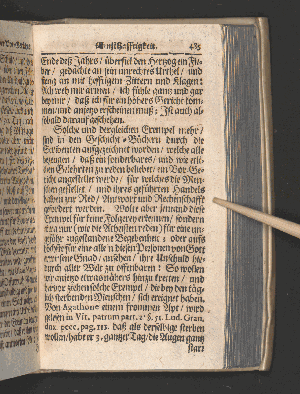 Ende deß Jahrs / überfiel den Hertzog ein Fie-
ber / gedachte an sein unrechtes Urthel / und
fieng an mit hefftigen Zittern und Klagen:
Ach weh mir armen / ich fühle gantz und gar
bevor / daß ich für ein höhers Gericht kom-
men / und anjetzo erscheinen muß: Ist auch al-
sobald darauf gescheẽn.
Solche und dergleichen Exempel mehr /
sind in den Geschicht-Büchern durch die
Scribenten aufgezeichnet worden / welche alle
bezeugen / daß ein sonderbares / und wie etli-
chen Gelehrten zu reden beliebet / ein Vor-Ge-
richt angestellet werde / für welches die Men-
schen gestellet / und ihres geführten Handels
halben zur Red / Antwort und Rechenschafft
gefordert worden. Wolte aber jemand diese
Exempel für keine Folge
nur (wie die Atheisten reden) für eine un-
gefähr zugestandene Begebenheit; oder aufs
höchste für eine allein diesen Personen von Gott
seine Gnad / ansehen / ihre Unschuld hie-
durch aller Welt zu offenbaren: So wollen
wir anjetzo etwas nähers hinzu tretten / und
hervor ziehen solche Exempel / die bey den täg-
lich sterbenden Menschen / sich ereignet haben.
Von Agathone einem frommen Apt / wird
gelesen in Vit. patrum part. 2. §. 51. Lud. Gran.
dox. pecc. pag. 113. daß als derselbige sterben
wollen / habe er 3. gantzer Tag / die Augen gantz
starz